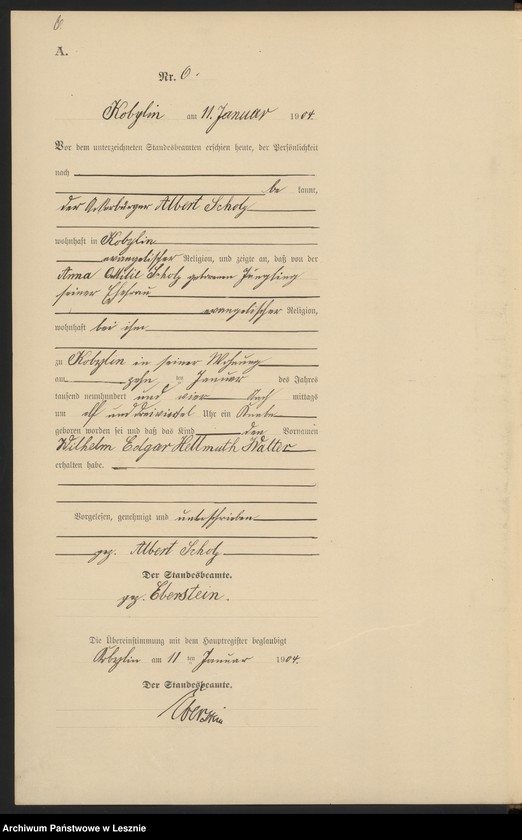 6.
A.
Nr. 6.
Kobylin am 11. Januar 1904.
Vor dem unterzeichneten Standesbeamten erschien heute, der Persönlichkeit
nach
be kannt,
der Ackerbürger Albert Scholz
wohnhaft in Kobylin
evangelischer Religion, und zeigte an, daß von der
Anna Ottilie Scholz geborenen Jüngling
seiner Ehefrau
evangelischer Religion,
wohnhaft bei ihm
zu Kobylin in seiner Wohnung
am zehn ten Januar des Jahres
tausend neunhundert und vier Nach mittags
um elf und dreiviertel Uhr ein Knabe
geboren worden sei und daß das Kind den Vornamen
Wilhelm Edgar Hellmuth Walter
erhalten habe.
Vorgelesen, genehmigt und unterschrieben
gez. Albert Scholz
Der Standesbeamte.
gez. Eberstein.
Die Übereinstimmung mit dem Hauptregister beglaubigt
Kobylin am 11 ten Januar 1904.
Der Standesbeamte.
Eberstein
Archiwum Państwowe w Lesznie